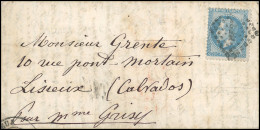 Monsieur Grente
10 rue pont-mortain
Lisieux (Calvados)
Pour mme Grisy